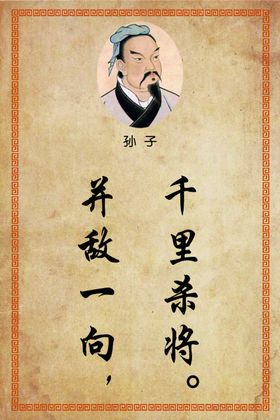 孙子
并敌一向，
千里杀将。